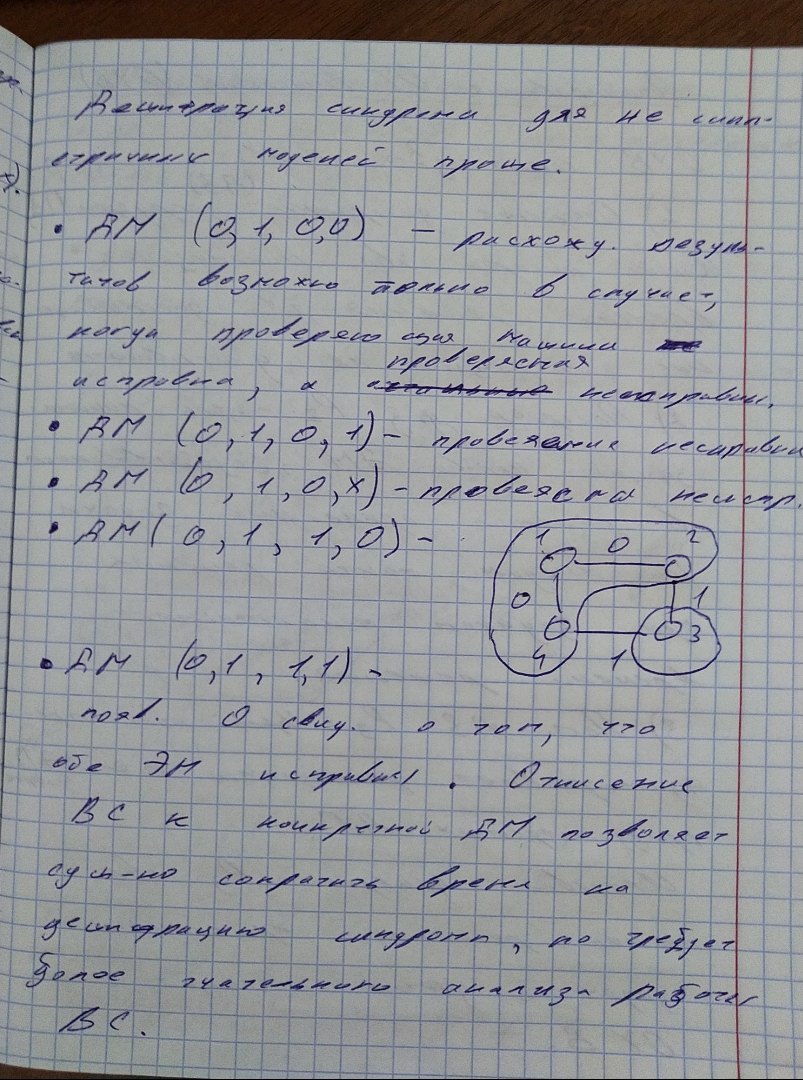 Дешифрация синдрома для не симм-
етричных моделей проще.
• ДМ (0, 1, 0, 0) — расхожд. резуль-
татов возможно только в случае,
когда проверяющая машина
проверяемая
исправна, а неисправна.
• ДМ (0, 1, 0, 1) - проверяемая неисправна
• ДМ (0, 1, 0, x) - проверяема неиспр.
• ДМ ( 0, 1, 1, 0) -
1 0 2
0 1
4 1 3
• ДМ (0, 1, 1, 1) -
появ. 0 свид. о том, что
обе ЭМ исправны. Отнесение
ВС к конкретной ДМ позволяет
сущ-но сократить время на
дешифрацию синдрома, но требует
более тщательного анализа работы
ВС.